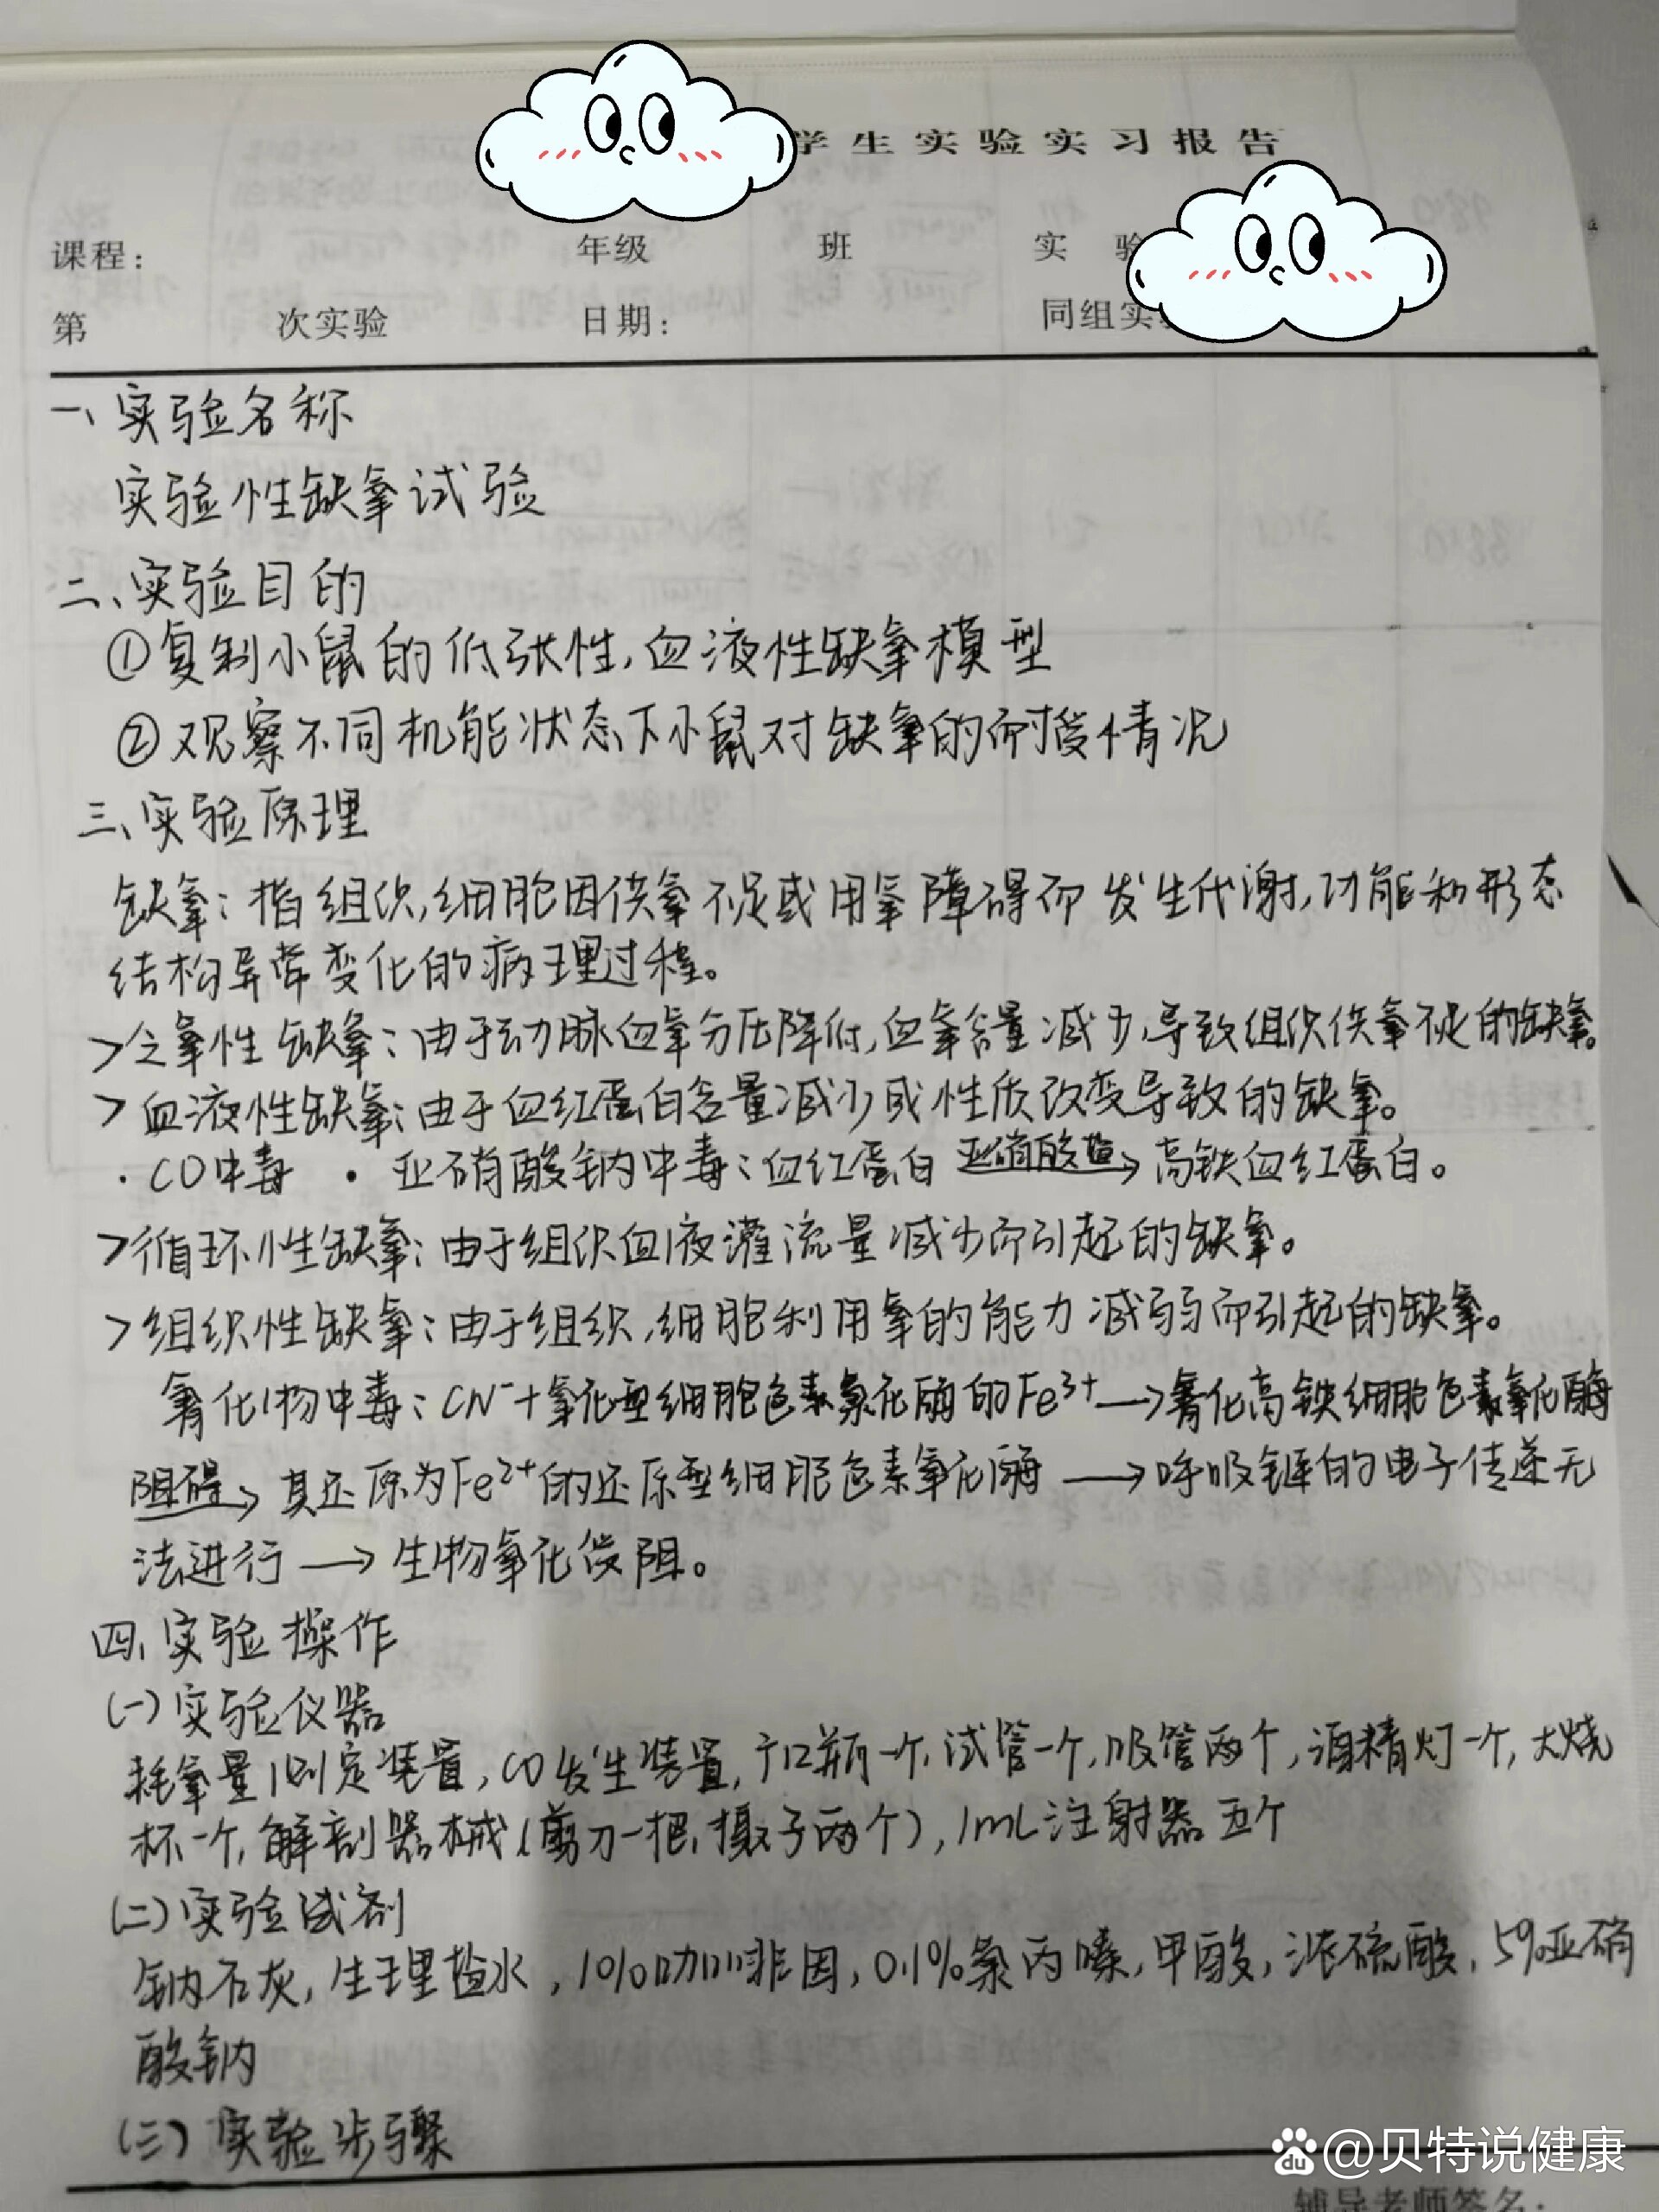 学生实验实习报告
课程： 年级 班 实 验
第 次实验 日期： 同组实
一、实验名称
实验性缺氧试验
二、实验目的
①复制小鼠的低张性,血液性缺氧模型
②观察不同机能状态下小鼠对缺氧的耐受情况
三、实验原理
缺氧：指组织,细胞因供氧不足或用氧障碍而发生代谢,功能和形态
结构异常变化的病理过程。
>乏氧性缺氧：由于动脉血氧分压降低,血氧含量减少,导致组织供氧不足的缺氧。
>血液性缺氧：由于血红蛋白含量减少或性质改变导致的缺氧。
·CO中毒 ·亚硝酸钠中毒：血红蛋白 亚硝酸盐→ 高铁血红蛋白。
>循环性缺氧：由于组织血液灌流量减少而引起的缺氧。
>组织性缺氧：由于组织,细胞利用氧的能力减弱而引起的缺氧。
氰化物中毒：CN⁻+氧化型细胞色素氧化酶的Fe³⁺→氰化高铁细胞色素氧化酶
阻碍→其还原为Fe²⁺的还原型细胞色素氧化酶→呼吸链的电子传递无
法进行→生物氧化受阻。
四、实验操作
(一)实验仪器
耗氧量测定装置,CO发生装置,广口瓶一个,试管一个,吸管两个,酒精灯一个,大烧
杯一个,解剖器械(剪刀一把,镊子两个),1mL注射器五个
(二)实验试剂
钠石灰,生理盐水,1%咖啡因,0.1%氯丙嗪,甲酸,浓硫酸,5%亚硝
酸钠
(三)实验步骤
du @贝特说健康
辅导老师签名：